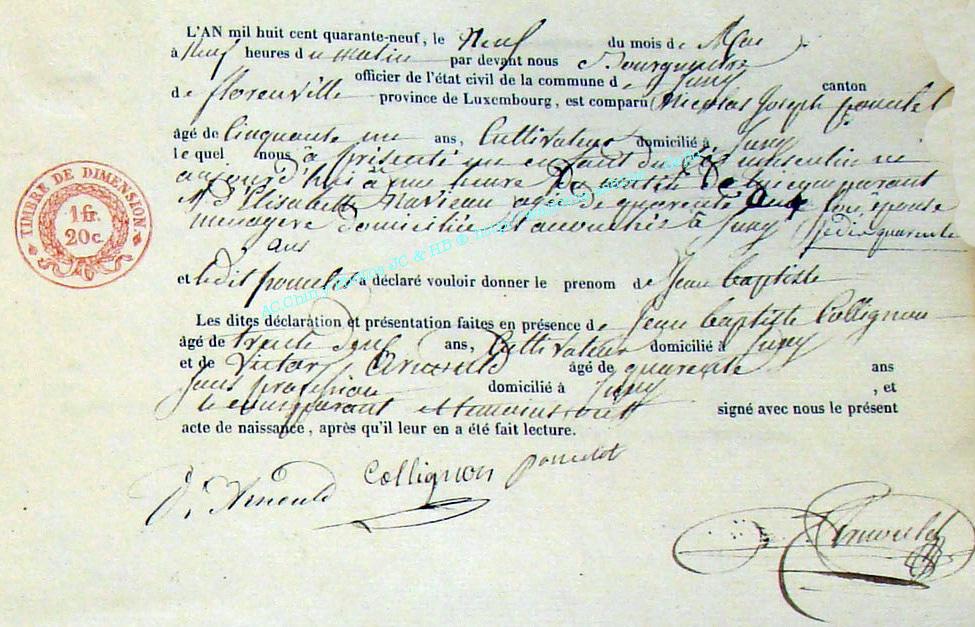 L'AN mil huit cent quarante-neuf, le Neuf du mois de Mai
à Neuf heures du matin par devant nous Bourgmestre
officier de l'état civil de la commune de Jzel canton
de florenville province de Luxembourg, est comparu Nicolas Joseph poncelet
âgé de Cinquante un ans, Cultivateur domicilié à
le quel nous à présenté un enfant du masculin né
aujourd'hui à une heure du matin de lui comparant
Elisabeth agée de quarente son épouse
menagère domiciliée et accouchée à jedis quarente
ans
et ledit poncelet a déclaré vouloir donner le prenom de Jean baptiste
Les dites déclaration et présentation faites en présence de Jean baptiste Collignon
âgé de trente neuf ans, Cultivateur domicilié à
et de Victor Arnould âgé de quarente ans
sans profession domicilié à , et
le comparant et temoins ont signé avec nous le présent
acte de naissance, après qu'il leur en a été fait lecture.
V. Arnould Collignon poncelet
Arnould
TIMBRE DE DIMENSION
1 fr.
20 c.